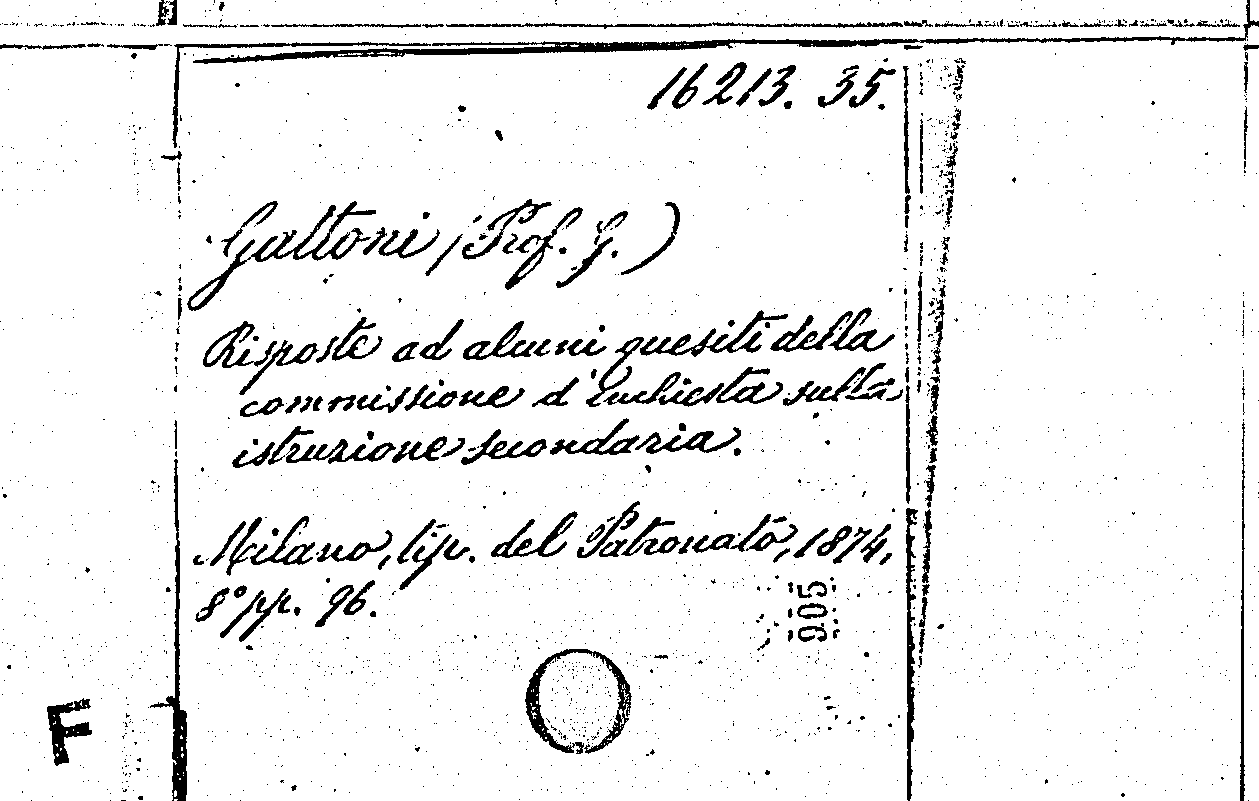 16213. 35.
Gattoni (Prof. G.)
Risposte ad alcuni quesiti della
commissione d'Inchiesta sulla
istruzione secondaria.
Milano, tip. del Patronato, 1874,
8° pp. 96.
905
F